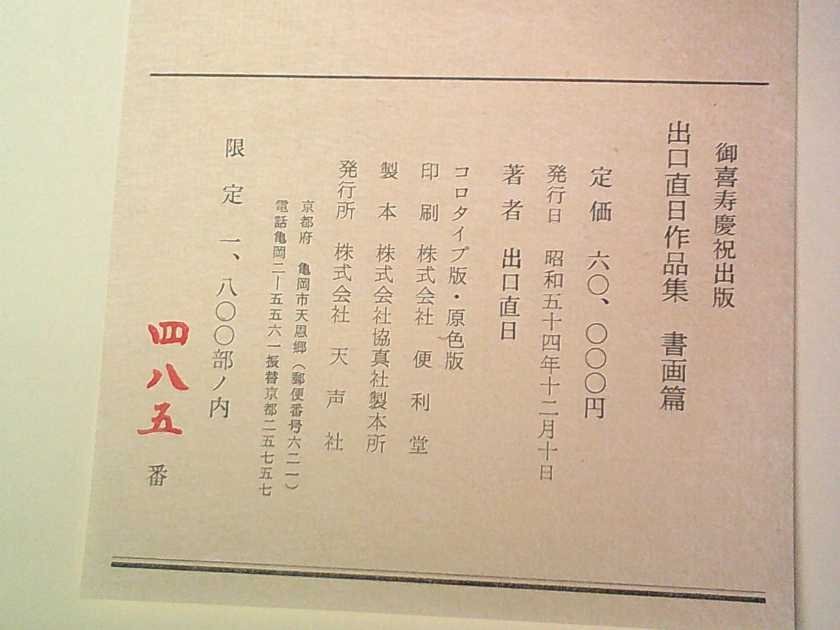 御喜寿慶祝出版
出口直日作品集　書画篇
定価　六〇、〇〇〇円
発行日　昭和五十四年十二月十日
著者　出口直日
コロタイプ版・原色版
印刷　株式会社　便利堂
製本　株式会社協真社製本所
発行所　株式会社　天声社
京都府　亀岡市天恩郷（郵便番号六二一）
電話亀岡二ー五五六一振替京都二五七五七
限定　一、八〇〇部ノ内
四八五番